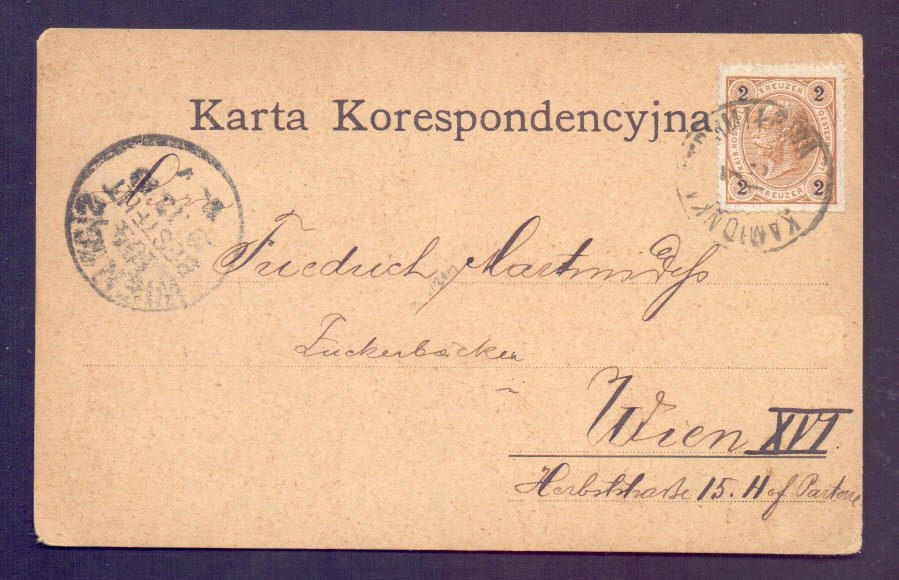 Karta Korespondencyjna
2 KREUZER 2
2 KREUZER 2
KAMIONKA STRUMIŁOWA
Herrn
Friedrich
Zuckerbäcker
Wien XVI.
Herbststraße 15. Hof Parterre